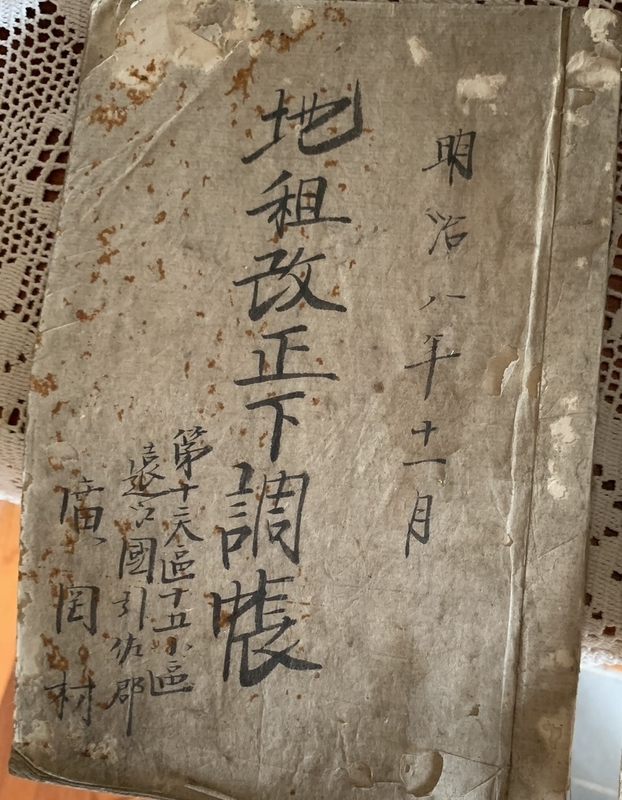 明治八年十一月
地租改正下調帳
第十二大區十五小區
遠江國引佐郡
廣岡村